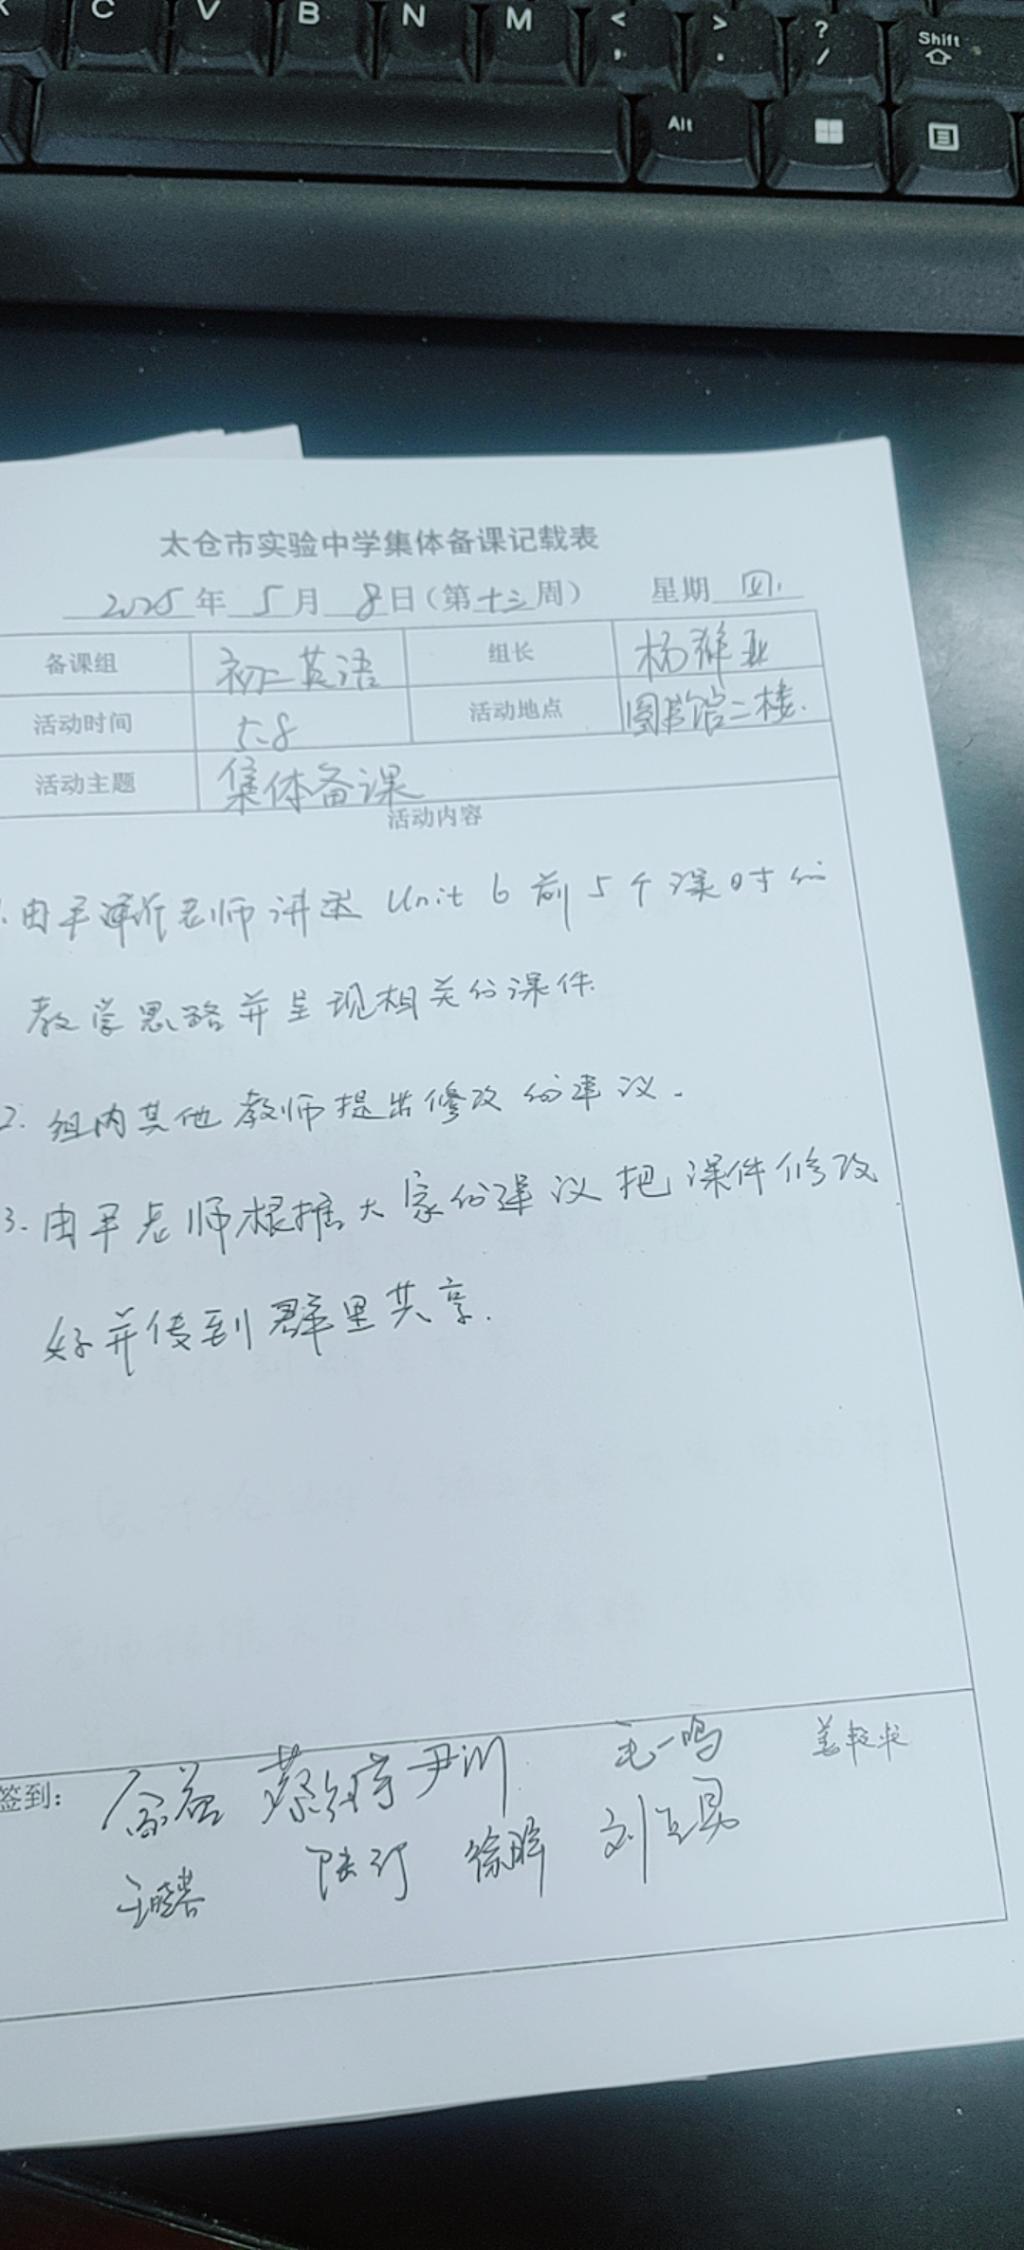 C V B N M < , > . ? / Shift
Alt
太仓市实验中学集体备课记载表
2025年5月8日(第十三周) 星期四.
备课组 初二英语 组长 杨雅亚
活动时间 5.8 活动地点 图书馆二楼.
活动主题 集体备课
活动内容
1.由 老师讲述 Unit 6 前5个课时的
教学思路并呈现相关的课件.
2. 组内其他教师提出修改的建议.
3. 由 老师根据大家的建议把课件修改
好并传到群里共享.
签到: 尹川 毛一鸣
徐晖